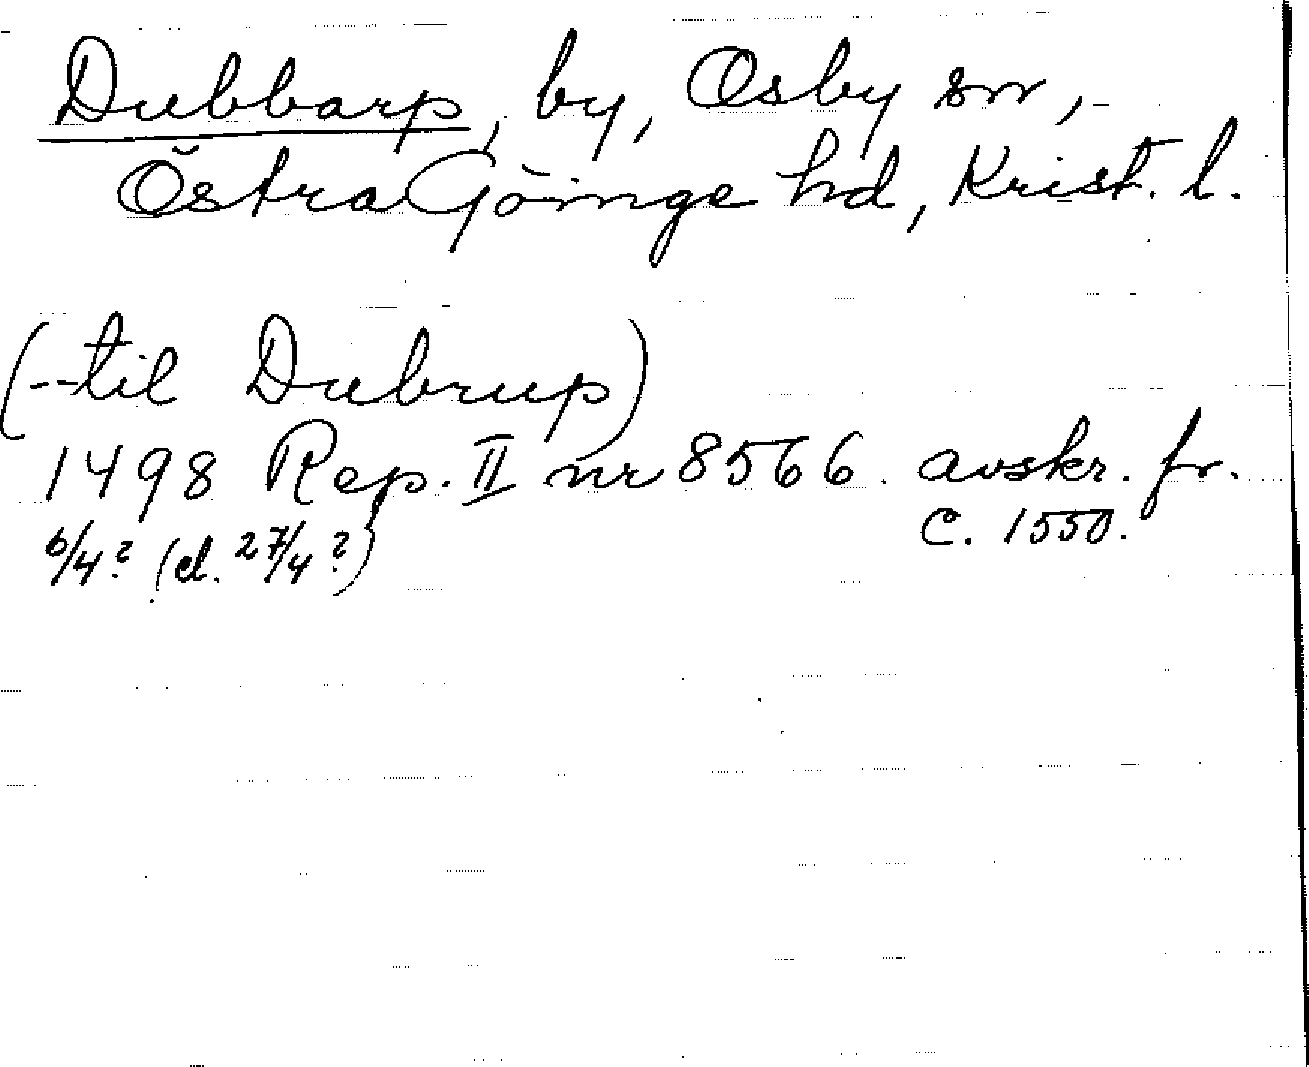 Dubbarp, by, Osby sn,
Östra Göinge hd, Krist. l.
(--til Dubrup)
1498 Rep. II nr 8566. avskr. fr.
6/4? (el. 27/4?) c. 1550.